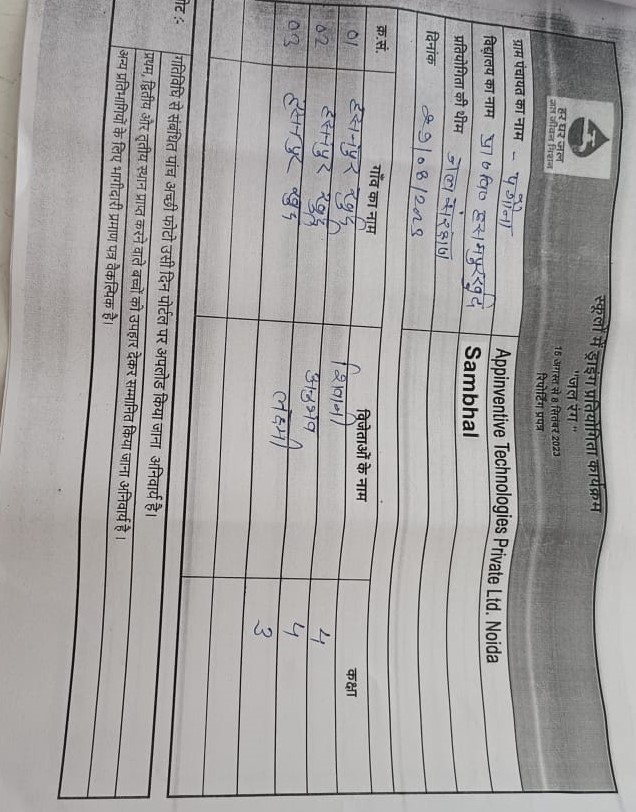 हर घर जल
जल जीवन मिशन
स्कूलों में ड्राइंग प्रतियोगिता कार्यक्रम
"जल रंग"
16 अगस्त से 8 सितंबर 2023
रिपोर्टिंग प्रपत्र
ग्राम पंचायत का नाम -
Appinventive Technologies Private Ltd. Noida
विद्यालय का नाम प्रा० वि० हसनपुर खुर्द
Sambhal
प्रतियोगिता की थीम जल संरक्षण
दिनांक
क्र.सं. गाँव का नाम विजेताओं के नाम कक्षा
01 हसनपुर खुर्द शिवानी 4
02 हसनपुर खुर्द अनुभव 4
03 हसनपुर खुर्द लक्ष्मी 3
नोट :-
गतिविधि से संबंधित पांच अच्छी फोटो उसी दिन पोर्टल पर अपलोड किया जाना अनिवार्य है।
प्रथम, द्वितीय और तृतीय स्थान प्राप्त करने वाले बच्चों को उपहार देकर सम्मानित किया जाना अनिवार्य है।
अन्य प्रतिभागियों के लिए भागीदारी प्रमाण पत्र वैकल्पिक है।